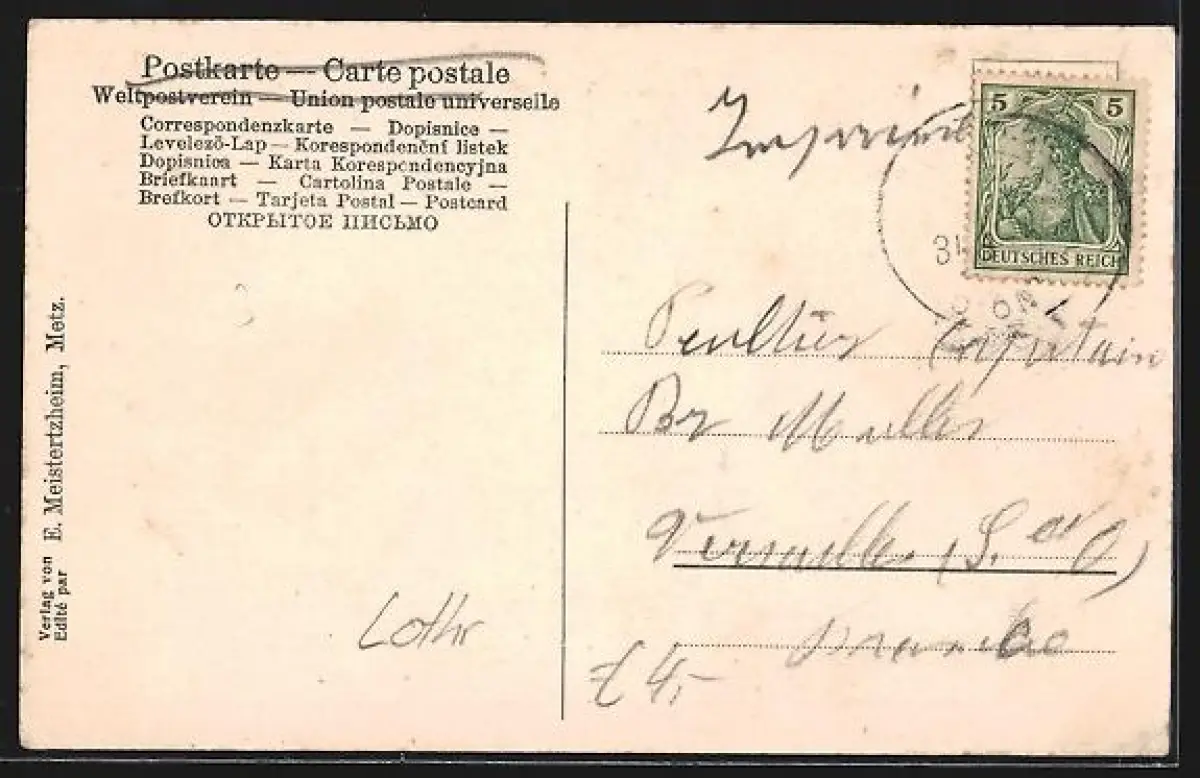 Postkarte — Carte postale
Weltpostverein — Union postale universelle
Correspondenzkarte — Dopisnice —
Levelező-Lap — Korespondenční listek
Dopisnica — Karta Korespondencyjna
Briefkaart — Cartolina Postale —
Brefkort — Tarjeta Postal — Postcard
ОТКРЫТОЕ ПИСЬМО
Verlag von
Edité par
E. Meistertzheim, Metz.
5 5
DEUTSCHES REICH
31
Br Muller
(S. et O)
Lothr
4,-